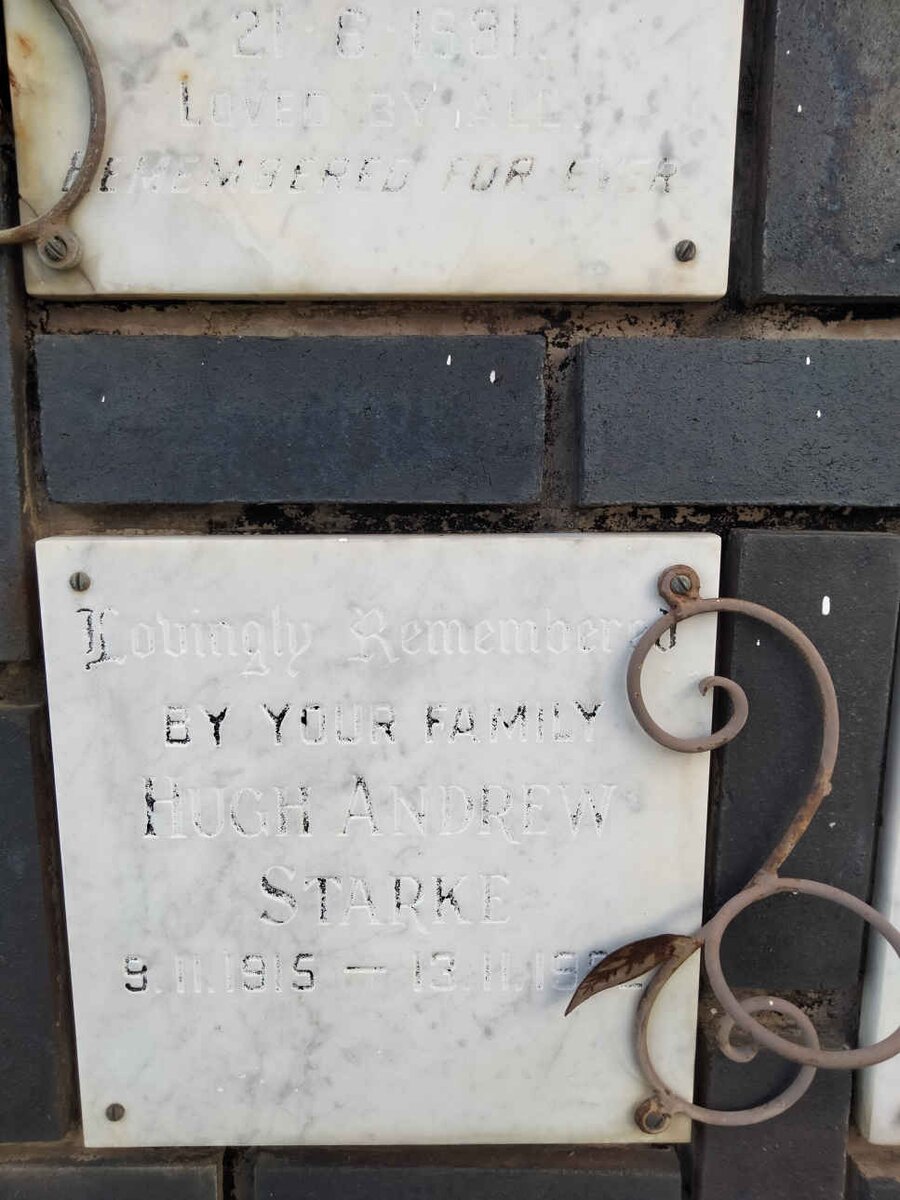 21·8·1981
LOVED BY ALL
REMEMBERED FOR EVER
Lovingly Remembered
BY YOUR FAMILY
HUGH ANDREW
STARKE
9.11.1915 — 13.11.